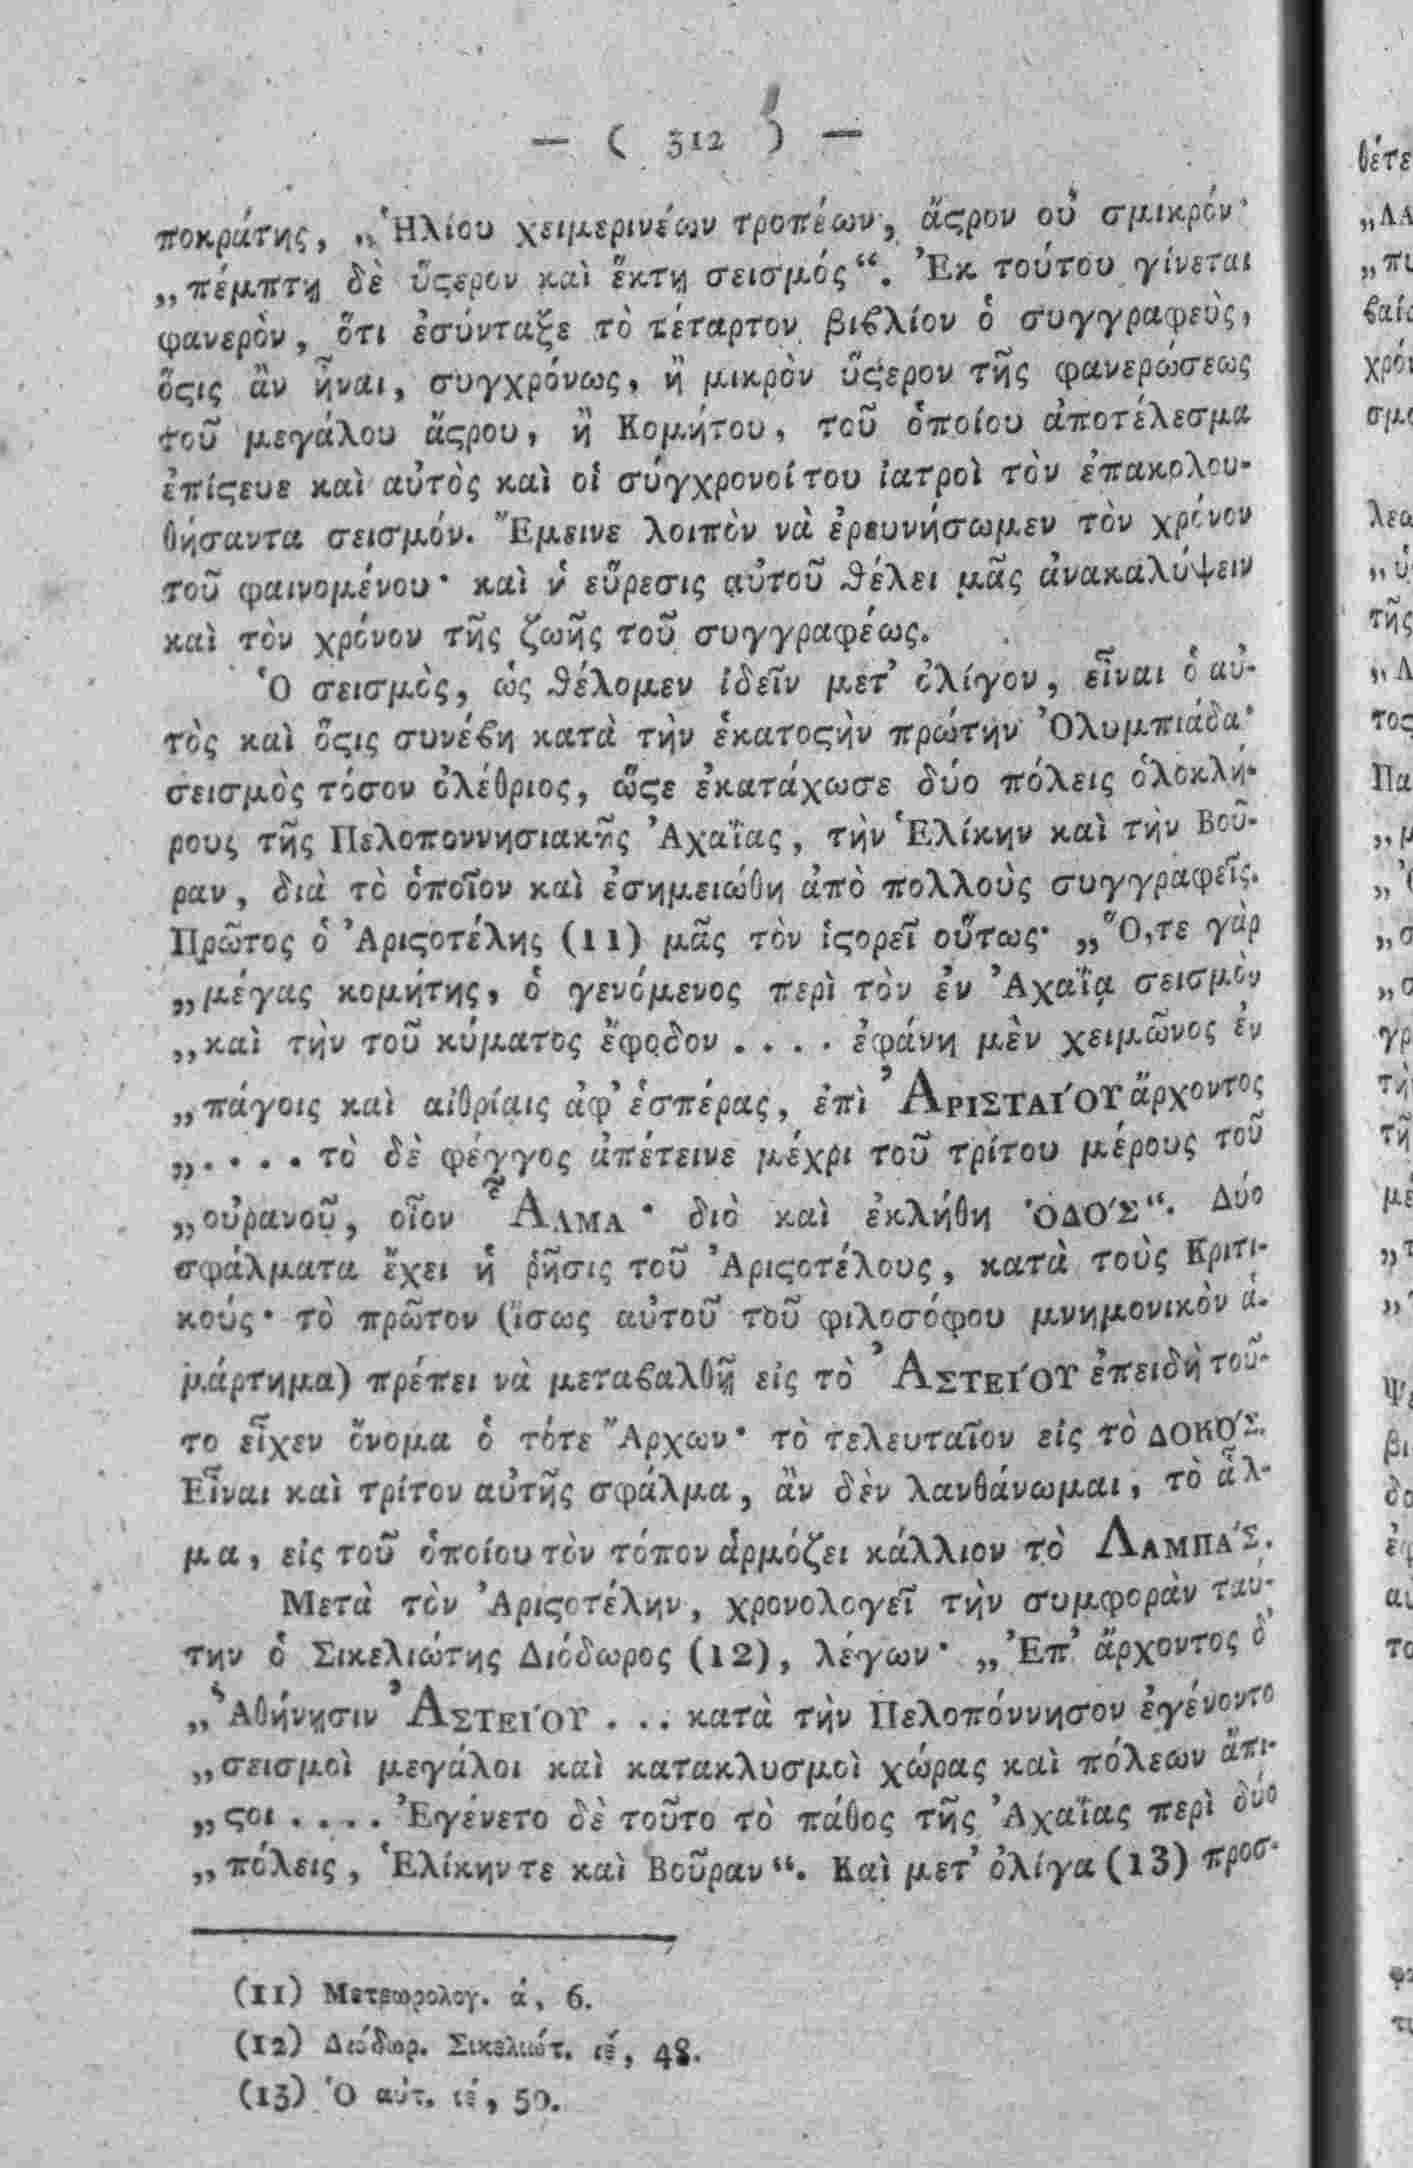 — ( 312 ) —
ποκράτης, „Ἡλίου χειμερινέων τροπέων, ἄϛρον οὐ σμικρόν·
„πέμπτῃ δὲ ὕϛερον καὶ ἕκτῃ σεισμός“. Ἐκ τούτου γίνεται
φανερὸν, ὅτι ἐσύνταξε τὸ τέταρτον βιϐλίον ὁ συγγραφεὺς,
ὅϛις ἂν ἦναι, συγχρόνως, ἢ μικρὸν ὕϛερον τῆς φανερώσεως
τοῦ μεγάλου ἄϛρου, ἢ Κομήτου, τοῦ ὁποίου ἀποτέλεσμα
ἐπίϛευε καὶ αὐτὸς καὶ οἱ σύγχρονοί του ἰατροὶ τὸν ἐπακολου-
θήσαντα σεισμόν. Ἔμεινε λοιπὸν νὰ ἐρευνήσωμεν τὸν χρόνον
τοῦ φαινομένου· καὶ ἡ εὕρεσις αὐτοῦ ϑέλει μᾶς ἀνακαλύψειν
καὶ τὸν χρόνον τῆς ζωῆς τοῦ συγγραφέως.
Ὁ σεισμὸς, ὡς ϑέλομεν ἰδεῖν μετ’ ὀλίγον, εἶναι ὁ αὐ-
τὸς καὶ ὅϛις συνέϐη κατὰ τὴν ἑκατοϛὴν πρώτην Ὀλυμπιάδα·
σεισμὸς τόσον ὀλέθριος, ὥϛε ἐκατάχωσε δύο πόλεις ὁλοκλή-
ρους τῆς Πελοποννησιακῆς Ἀχαΐας, τὴν Ἑλίκην καὶ τὴν Βοῦ-
ραν, διὰ τὸ ὁποῖον καὶ ἐσημειώθη ἀπὸ πολλοὺς συγγραφεῖς.
Πρῶτος ὁ Ἀριϛοτέλης (11) μᾶς τὸν ἱϛορεῖ οὕτως· „Ὅ,τε γὰρ
„μέγας κομήτης, ὁ γενόμενος περὶ τὸν ἐν Ἀχαΐᾳ σεισμὸν
„καὶ τὴν τοῦ κύματος ἔφοδον .... ἐφάνη μὲν χειμῶνος ἐν
„πάγοις καὶ αἰθρίαις ἀφ’ ἑσπέρας, ἐπὶ ἈΡΙΣΤΑΙ´ΟΥ ἄρχοντος
„.... τὸ δὲ φέγγος ἀπέτεινε μέχρι τοῦ τρίτου μέρους τοῦ
„οὐρανοῦ, οἷον ἍΛΜΑ· διὸ καὶ ἐκλήθη ὉΔΟ´Σ“. Δύο
σφάλματα ἔχει ἡ ῥῆσις τοῦ Ἀριϛοτέλους, κατὰ τοὺς Κριτι-
κούς· τὸ πρῶτον (ἴσως αὐτοῦ τοῦ φιλοσόφου μνημονικὸν ἁ-
μάρτημα) πρέπει νὰ μεταϐαλθῇ εἰς τὸ ἈΣΤΕΙ´ΟΥ ἐπειδὴ τοῦ-
το εἶχεν ὄνομα ὁ τότε Ἄρχων· τὸ τελευταῖον εἰς τὸ ΔΟΚΟ´Σ.
Εἶναι καὶ τρίτον αὐτῆς σφάλμα, ἂν δὲν λανθάνωμαι, τὸ ἅλ-
μα, εἰς τοῦ ὁποίου τὸν τόπον ἁρμόζει κάλλιον τὸ ΛΑΜΠΑ´Σ.
Μετὰ τὸν Ἀριϛοτέλην, χρονολογεῖ τὴν συμφορὰν ταύ-
την ὁ Σικελιώτης Διόδωρος (12), λέγων· „Ἐπ’ ἄρχοντος δ’
„Ἀθήνησιν ἈΣΤΕΙ´ΟΥ ... κατὰ τὴν Πελοπόννησον ἐγένοντο
„σεισμοὶ μεγάλοι καὶ κατακλυσμοὶ χώρας καὶ πόλεων ἄπι-
„ϛοι .... Ἐγένετο δὲ τοῦτο τὸ πάθος τῆς Ἀχαΐας περὶ δύο
„πόλεις, Ἑλίκην τε καὶ Βοῦραν“. Καὶ μετ’ ὀλίγα (13) προσ-
(11) Μετεωρολογ. ά, 6.
(12) Διόδωρ. Σικελιώτ. ιέ, 48.
(13) Ὁ αὐτ. ιέ, 50.